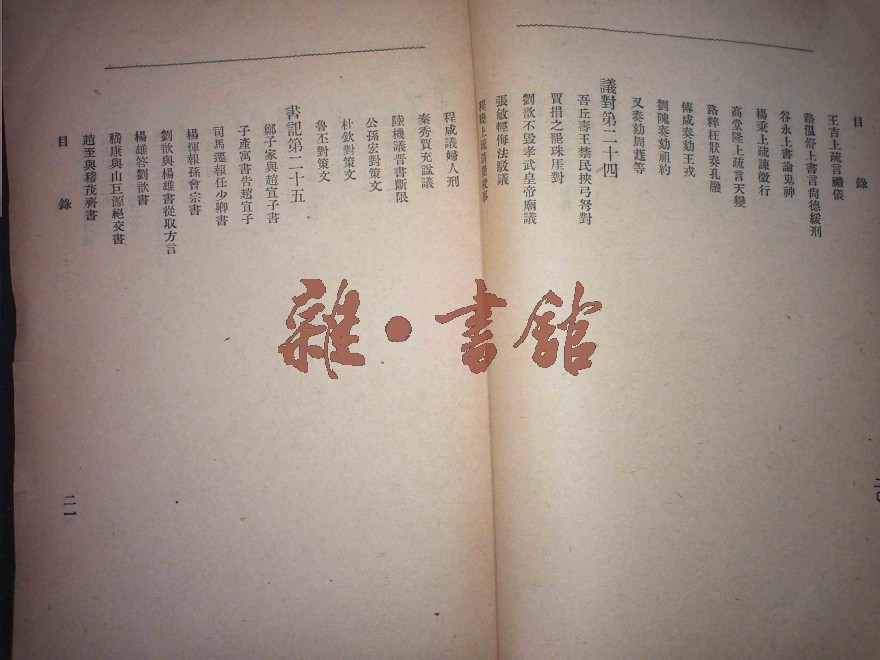 目錄
王吉上疏言禮儀
路溫舒上書言尙德緩刑
谷永上書論鬼神
楊秉上疏諫微行
高堂隆上疏言天變
路粹枉狀奏孔融
傅咸奏劾王戎
劉隗奏劾祖約
又奏劾周莚等
議對第二十四
吾丘壽王禁民挾弓弩對
賈捐之罷珠厓對
劉歆不毀孝武皇帝廟議
張敏輕侮法駁議
程曉上疏
程咸議婦人刑
秦秀賈充諡議
陸機議晉書斷限
公孫宏對策文
杜欽對策文
魯丕對策文
書記第二十五
鄭子家與趙宣子書
子產寓書告趙宣子
司馬遷報任少卿書
楊惲報孫會宗書
劉歆與楊雄書從取方言
楊雄答劉歆書
嵇康與山巨源絕交書
趙至與嵇茂齊書
目錄
二一
雜·書館